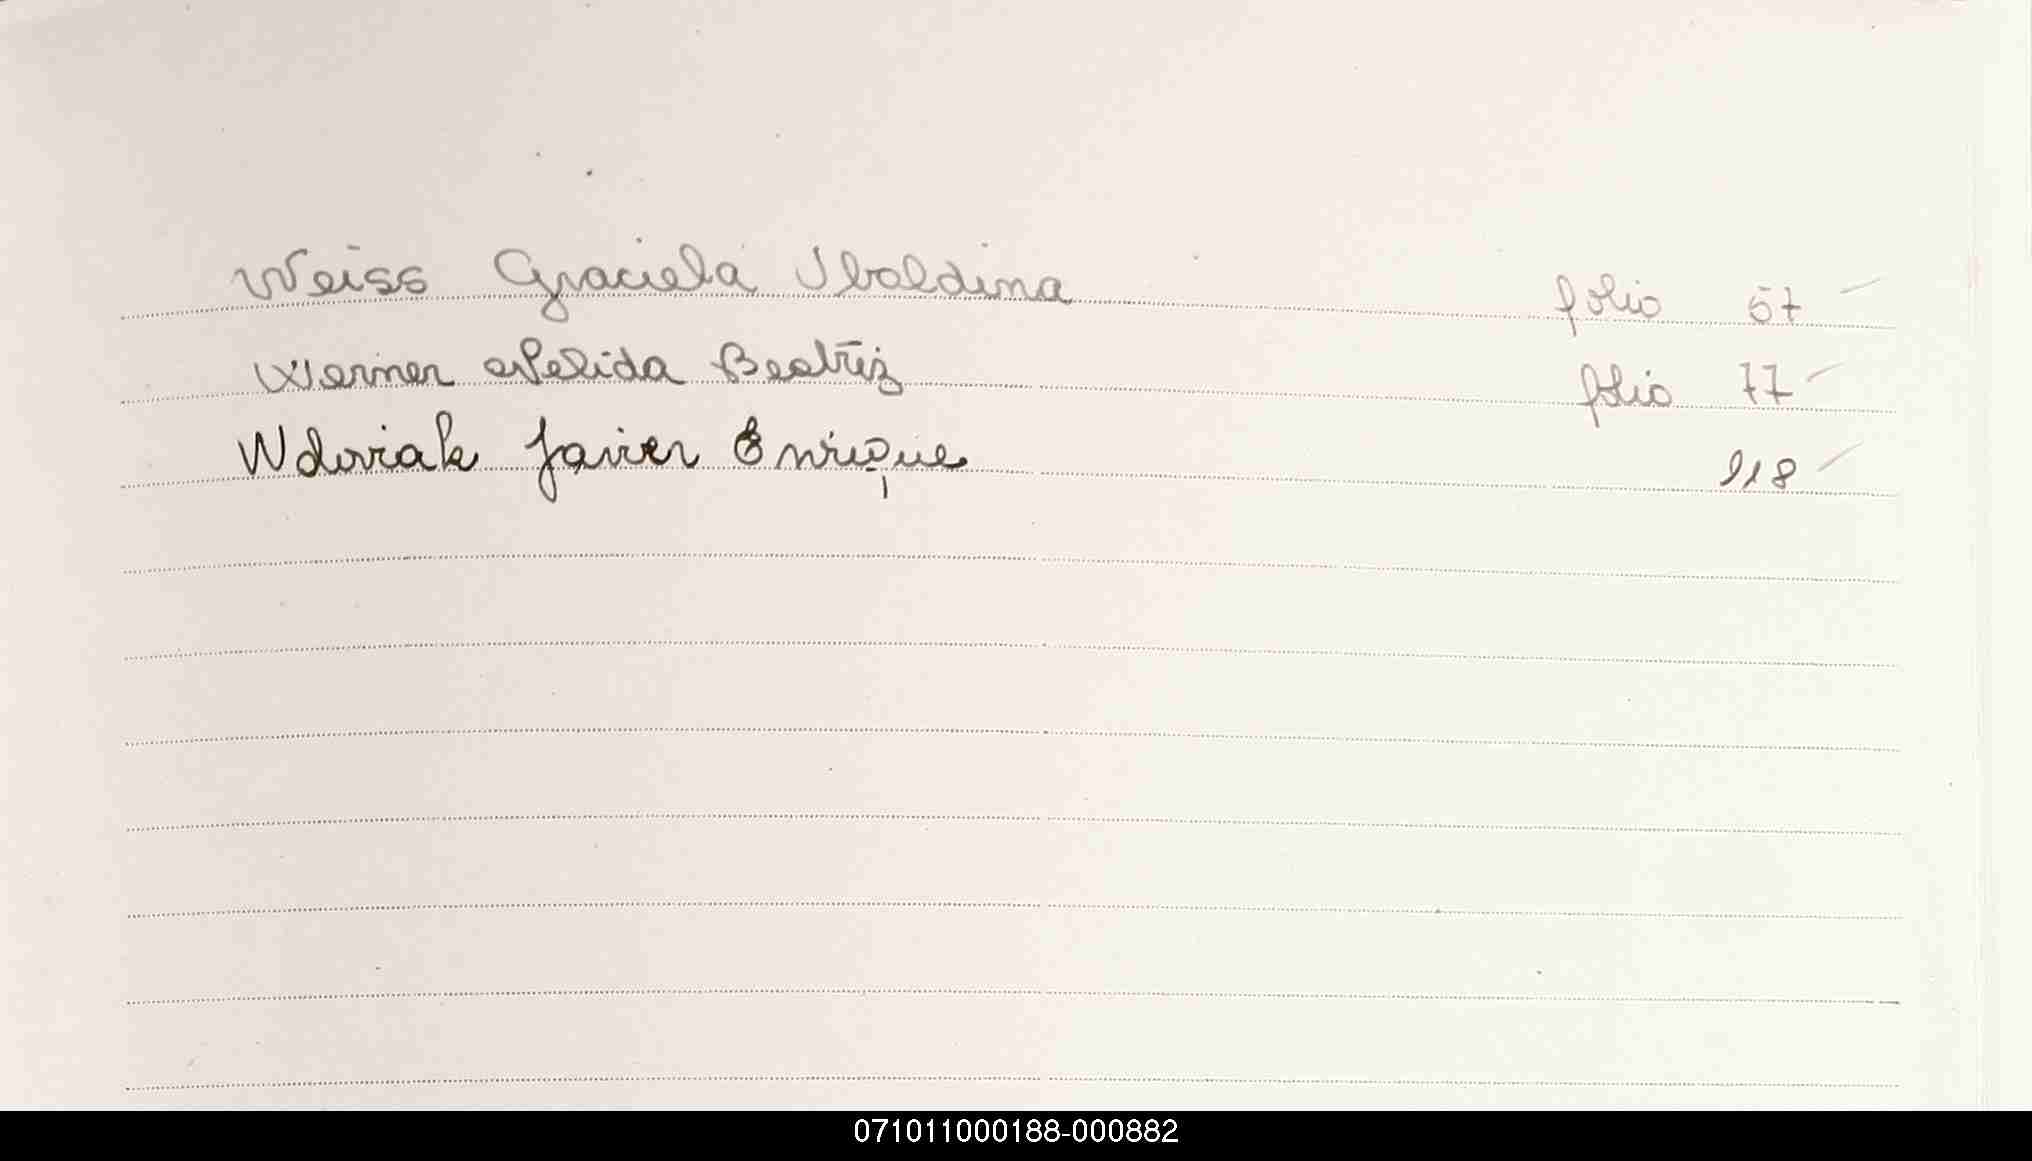 Weiss Graciela Iboldina folio 57
Werner Nelida Beatriz folio 77
Wdoviak Javier Enrique 118
071011000188-000882